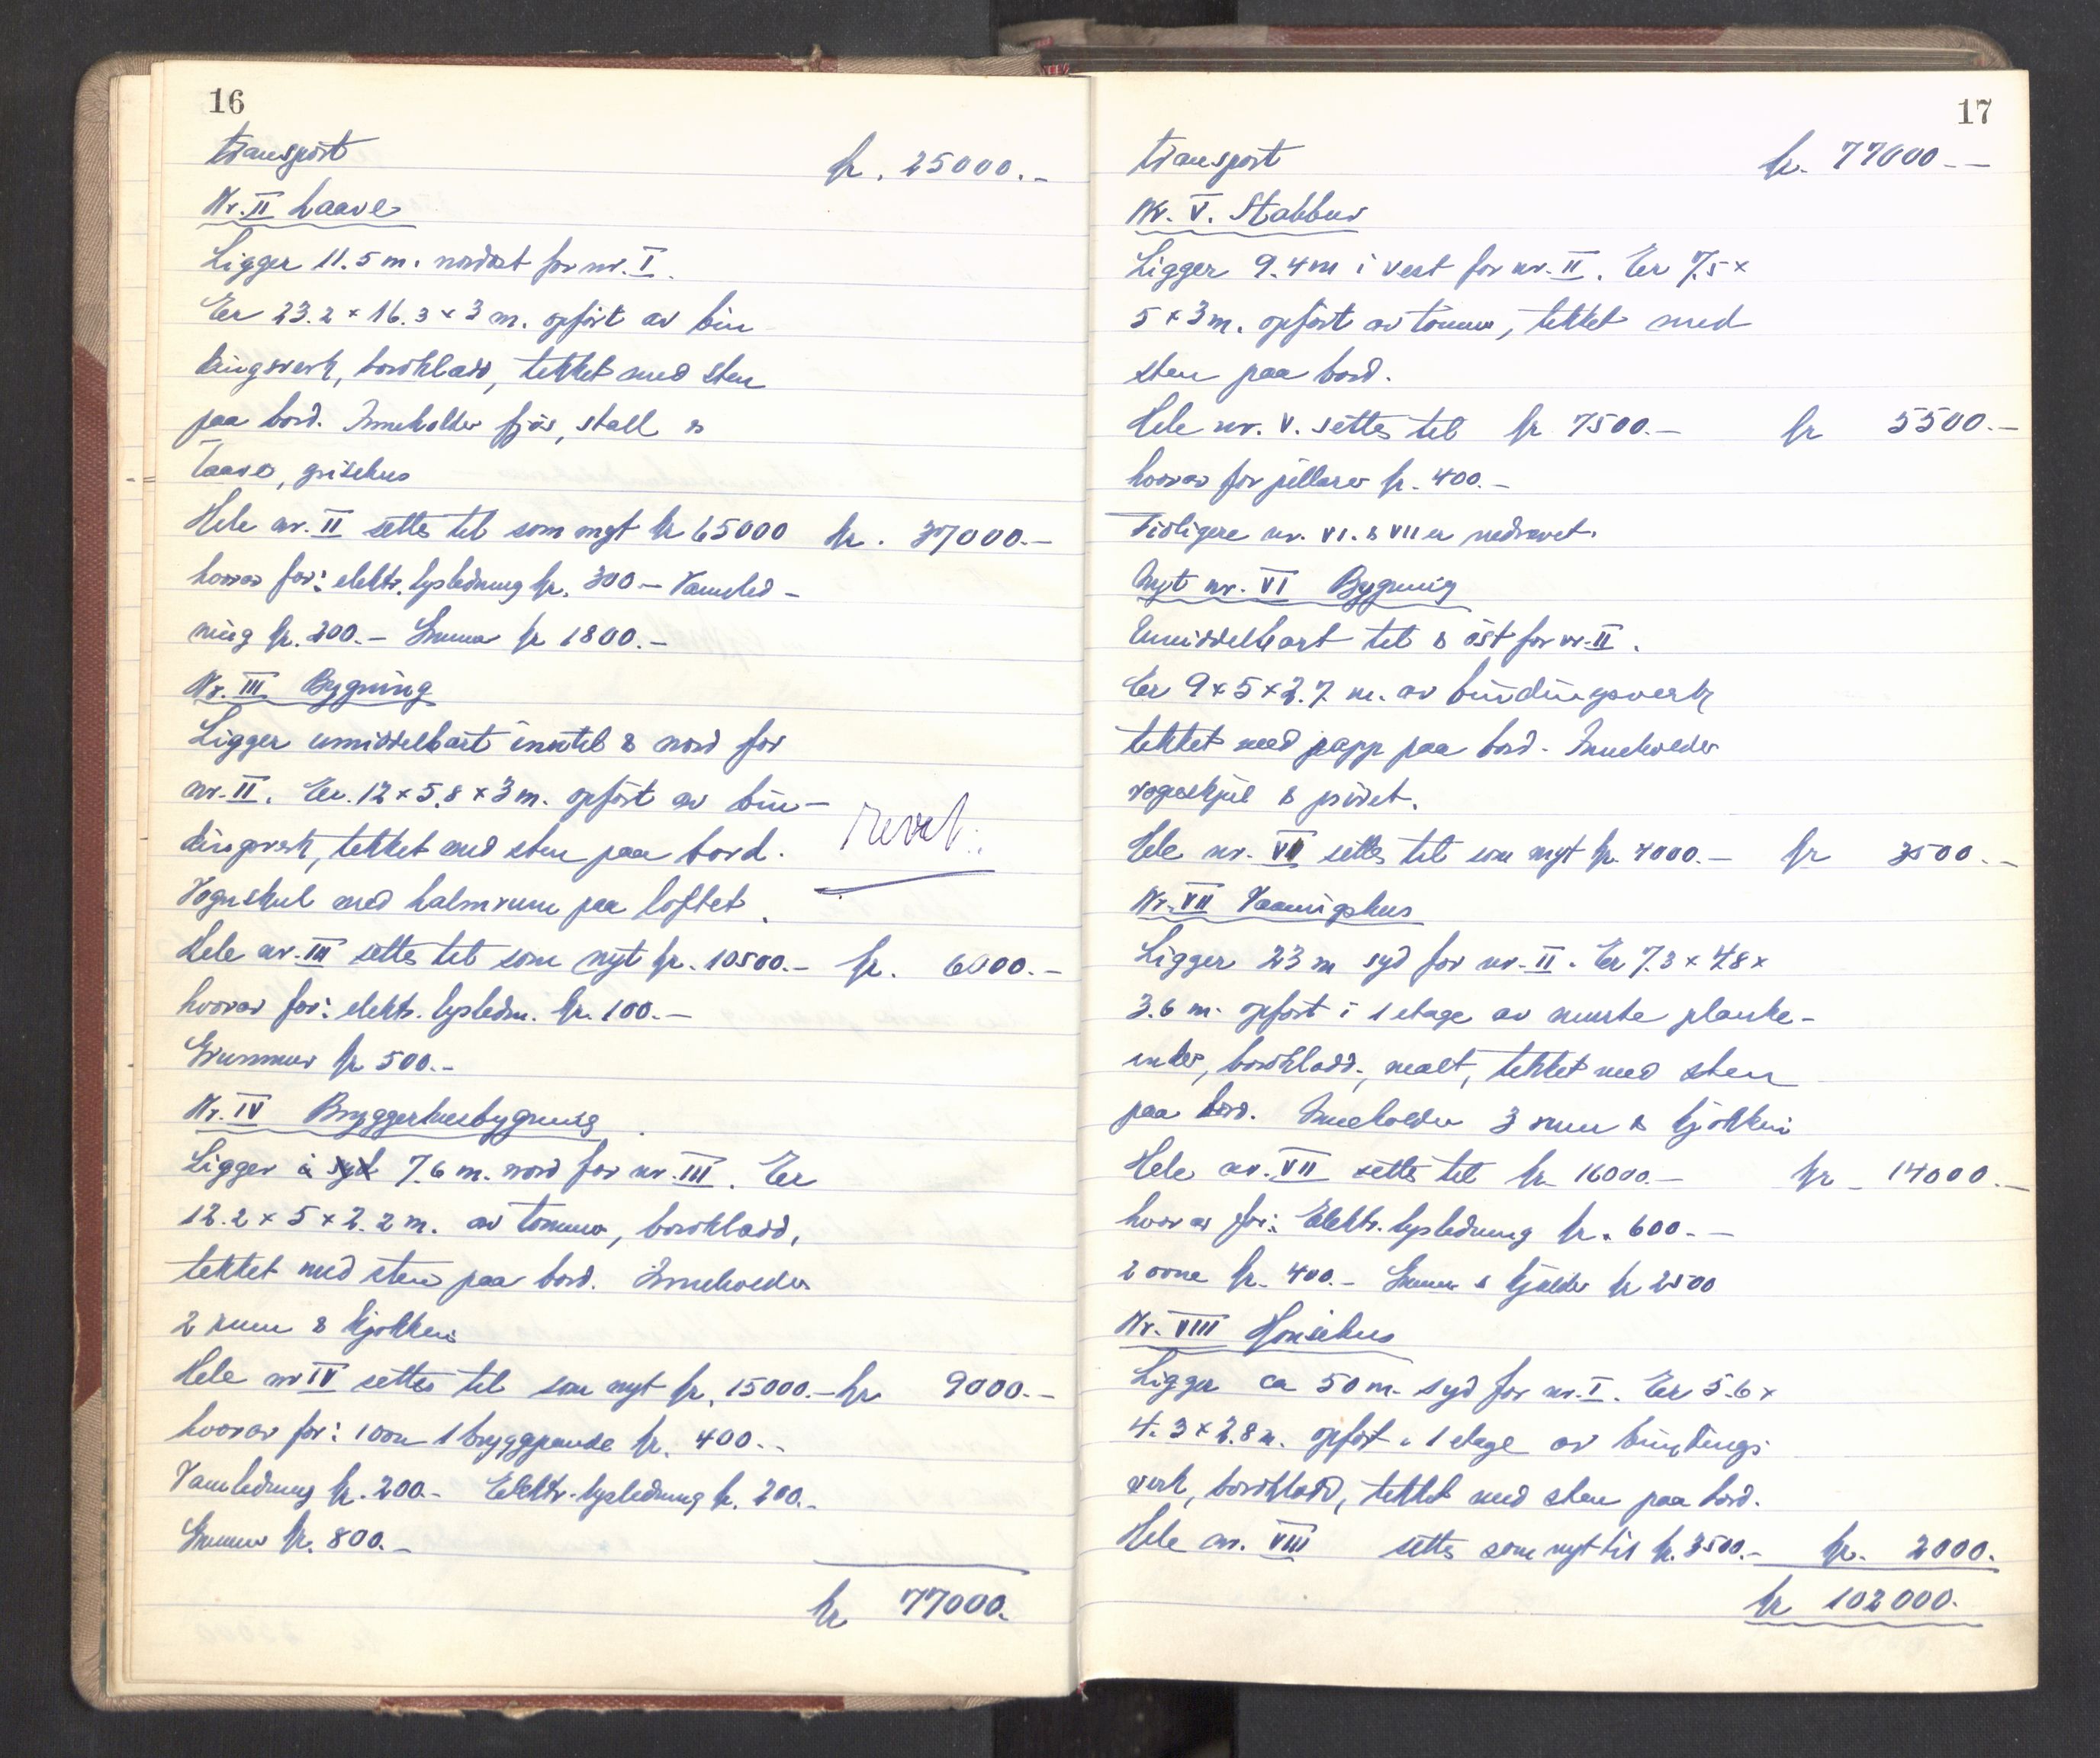 16
Transport kr. 25000.-
Nr. II Laave
Ligger 11.5 m. nordöst for nr. I.
Er 23.2 × 16.3 × 3 m. opfört av bin
dingsverk, bordkladd, tekket med sten
paa bord. Inneholder fjös, stall &
laave, grisehus
Hele nr. II settes til som nyt kr 65000 kr. 37000.-
hvorav for: elektr. lysledning kr. 300 - Vannled-
ning kr. 200.- Grunmur kr 1800.-
Nr. III Bygning
Ligger umiddelbart inntil & nord for
nr. II. Er. 12 × 5.8 × 3 m. opfört av bin-
dingsverk, tekket med sten paa bord.
revet
Vognskul med halmrum paa loftet.
Hele nr. III settes til som nyt kr. 10500.- kr. 6000.-
hvorav for: elektr. lysledn. kr. 100.-
Grunnmur kr 500.-
Nr. IV Bryggerhusbygning
Ligger i syd 7.6 m. nord for nr. III. Er
12.2 × 5 × 2.2 m. av tömmer, bordkladd,
tekket med sten paa bord. Inneholder
2 rum & kjökken
Hele nr IV settes til som nyt kr. 15000.- kr 9000.-
hvorav for: 1 ovn 1 bryggpande kr. 400.-
Vannledning kr. 200.- Elektr. lysledning kr. 200.-
Grunmur kr. 800.-
kr 77000.
17
Transport kr. 77000.-
Nr. V. Stabbur
Ligger 9.4 m i vest for nr. II. Er 7.5 ×
5 × 3 m. opfört av tömmer, tekket med
sten paa bord.
Hele nr. V. settes til kr 7500.- kr 5500.-
hvorav for pillarer kr. 400.-
Tidligere nr. VI. & VII er nedrevet.
Nyt nr. VI Bygning
Umiddelbart til & öst for nr. II.
Er 9 × 5 × 2.7 m. av bindingsverk
tekket med papp paa bord. Inneholder
vognskjul & privet.
Hele nr. VI settes til som nyt kr. 4000.- kr 3500.-
Nr. VII Vaaningshus
Ligger 23 m syd for nr. II. Er 7.3 × 4.8 ×
3.6 m. opfört i 1 etage av planke-
bordkladd., malt, tekket med sten
paa bord. Inneholder 3 rum & kjökken
Hele nr. VII settes til kr 16000.- kr 14000.-
hvorav for: Elektr. lysledning kr. 600.-
2 ovne kr. 400.- Grunmur & kjelder kr 2500
Nr. VIII Hönsehus
Ligger ca 50 m. syd for nr. I. Er 5.6 ×
4.3 × 2.8 m. opfört i 1 etage av bindings
verk, bordkladd, tekket med sten paa bord.
Hele nr. VIII settes som nyt til kr. 3500.- kr. 2000.
kr 102000.